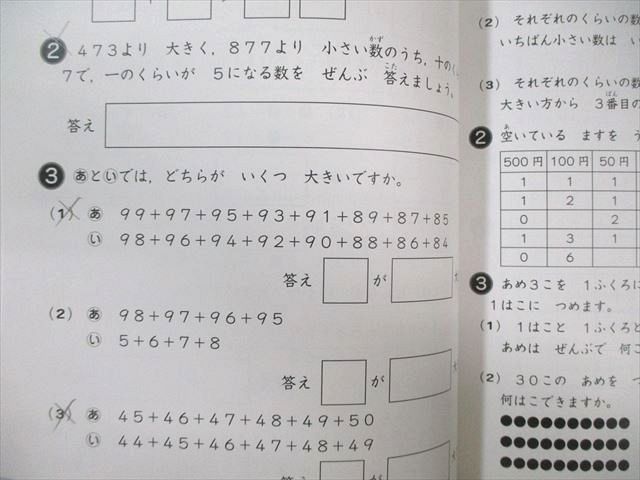 2 473より 大きく，877より 小さい数のうち，十のく
かず
7で，一のくらいが 5になる数を ぜんぶ 答えましょう。
こた
答え
3 あといでは，どちらが いくつ 大きいですか。
(1) あ 99+97+95+93+91+89+87+85
い 98+96+94+92+90+88+86+84
答え が
(2) あ 98+97+96+95
い 5+6+7+8
答え が
(3) あ 45+46+47+48+49+50
い 44+45+46+47+48+49
答え が
(2) それぞれのくらいの数
いちばん小さい数は い
(3) それぞれのくらいの数
ばん
大きい方から 3番目の
あ
2 空いている ますを う
500円 100円 50円
1 1 1
1 2 1
0 2
1 3 1
0 6
3 あめ3こを 1ふくろに
1はこに つめます。
(1) 1はこと 1ふくろと
あめは ぜんぶで 何こ
(2) 30この あめを つ
何はこできますか。